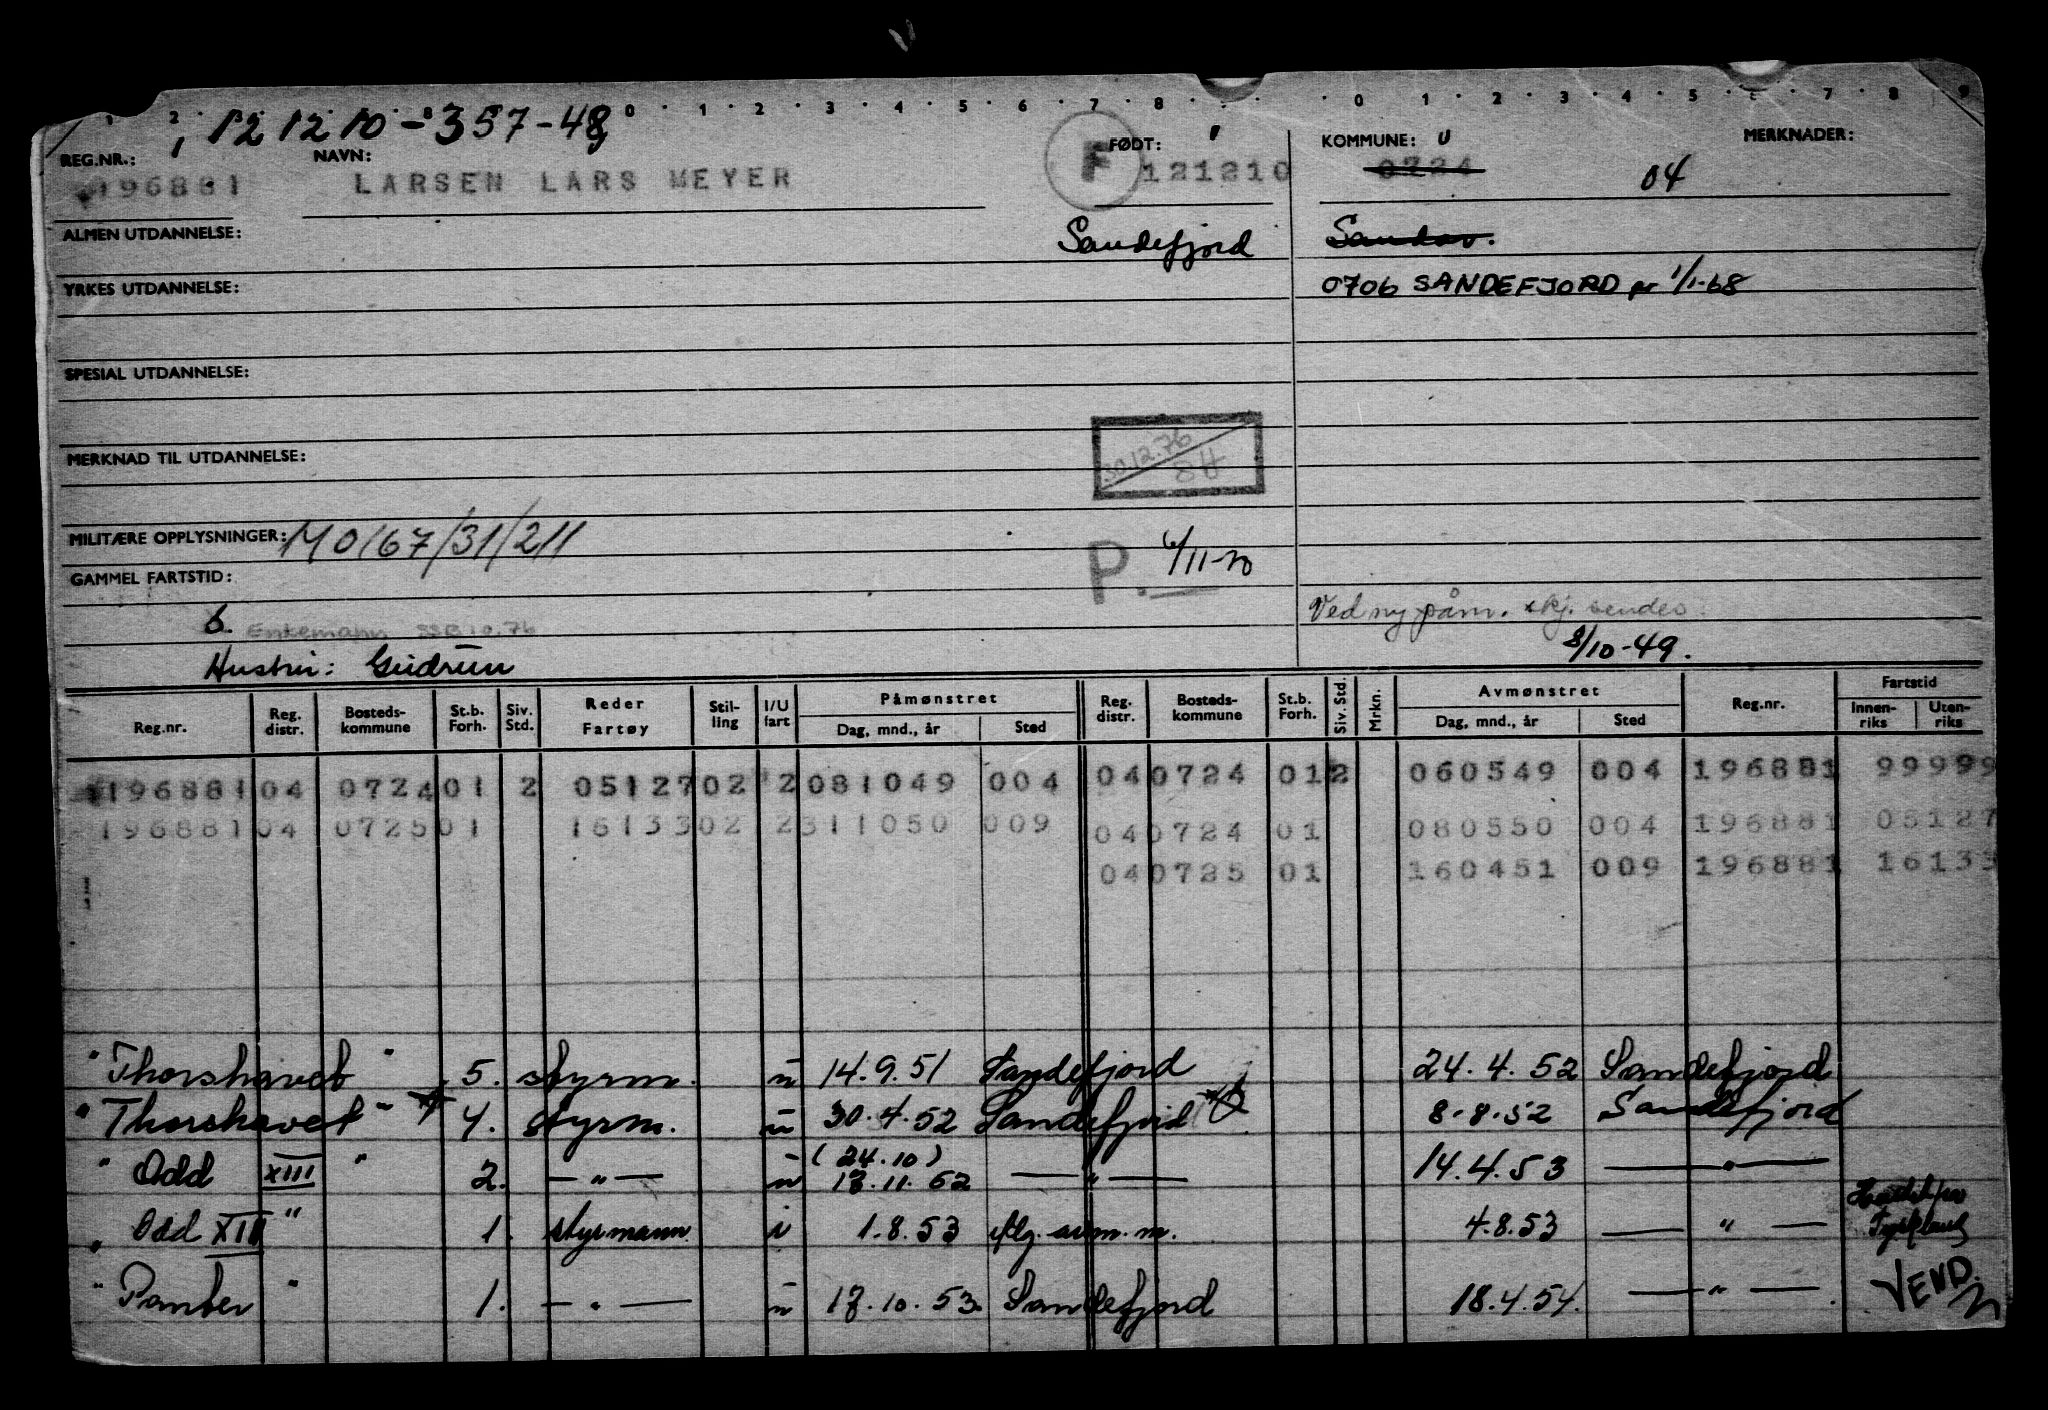 1 2 0 1 2 3 4 5 6 7 8 0 1 2 3 4 5 6 7 8 9
121210-357-48
REG.NR.: NAVN: FØDT: KOMMUNE: U MERKNADER:
196881 LARSEN LARS MEYER F 121210 0724 04
ALMEN UTDANNELSE: Sandefjord Sandar.
YRKES UTDANNELSE: 0706 SANDEFJORD pr 1/1-68
SPESIAL UTDANNELSE:
30.12.76
MERKNAD TIL UTDANNELSE:
MILITÆRE OPPLYSNINGER: MO/67/31/211
P. 6/11-70
GAMMEL FARTSTID:
6. Enkemann SSB 10.76 Ved ny påm. skj. sendes
8/10-49.
Hustru: Gudrun
Reg.nr. Reg. distr. Bosteds-kommune St.b. Forh. Siv. Std. Reder Fartøy Stil-ling I/U fart Påmønstret Dag, mnd., år Sted Reg. distr. Bosteds-kommune St.b. Forh. Siv. Std. Mrkn. Avmønstret Dag, mnd., år Sted Reg.nr. Fartstid Innen-riks Uten-riks
196881 04 0724 01 2 05127 02 2 081049 004 04 0724 01 2 060549 004 196881 99999
196881 04 0725 01 16133 02 2 311050 009 04 0724 01 080550 004 196881 05127
04 0725 01 160451 009 196881 16133
"Thorshavet" 5. styrm. u 14.9.51 Sandefjord 24.4.52 Sandefjord
"Thorshavet" 4. styrm. u 30.4.52 Sandefjord 8.8.52 Sandefjord
(24.10)
"Odd XIII" 2. — " — u 13.11.52 — " — 14.4.53 — " —
"Odd XIII" 1. styrmann i 1.8.53 4.8.53 — " —
"Panter" 1. — " — u 13.10.53. Sandefjord 18.4.54. — " —
VEND